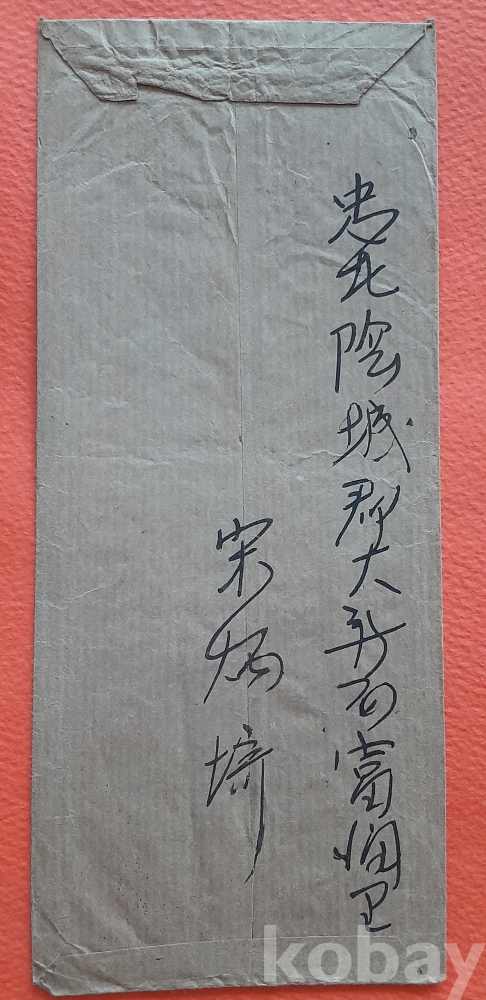 忠北陰城郡大所面富潤里
宋炳埼
kobay